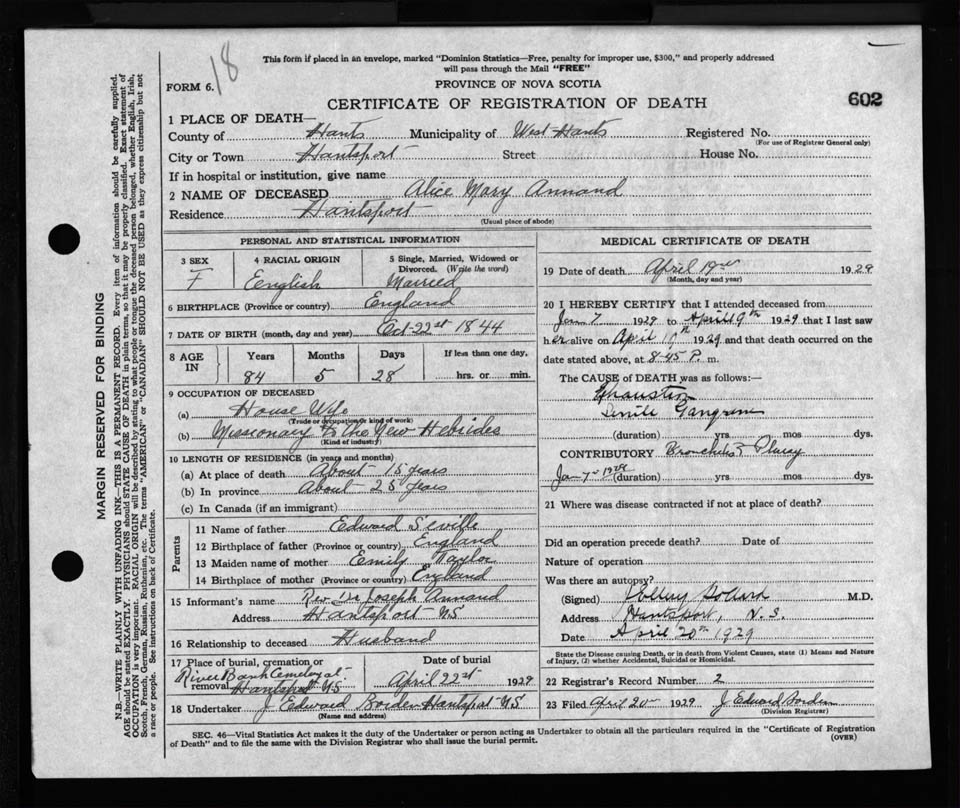 18
This form if placed in an envelope, marked "Dominion Statistics—Free, penalty for improper use, $300," and properly addressed
will pass through the Mail "FREE"
FORM 6.
PROVINCE OF NOVA SCOTIA
CERTIFICATE OF REGISTRATION OF DEATH
602
1 PLACE OF DEATH—
County of Hants Municipality of West Hants Registered No.
(For use of Registrar General only)
City or Town Hantsport Street House No.
If in hospital or institution, give name
2 NAME OF DECEASED Alice Mary Annand
Residence Hantsport
(Usual place of abode)
PERSONAL AND STATISTICAL INFORMATION
3 SEX 4 RACIAL ORIGIN 5 Single, Married, Widowed or
Divorced. (Write the word)
F English Married
6 BIRTHPLACE (Province or country) England
7 DATE OF BIRTH (month, day and year) Oct 22st 1844
8 AGE IN Years Months Days If less than one day,
84 5 28 hrs. or min.
9 OCCUPATION OF DECEASED
(a) House Wife
(Trade or occupation or kind of work)
(b) Missionary to the New Hebrides
(Kind of industry)
10 LENGTH OF RESIDENCE (in years and months)
(a) At place of death About 15 years
(b) In province About 25 years
(c) In Canada (if an immigrant)
Parents
11 Name of father Edward Seville
12 Birthplace of father (Province or country) England
13 Maiden name of mother Emily Taylor
14 Birthplace of mother (Province or country) England
15 Informant's name Rev Dr Joseph Annand
Address Hantsport NS
16 Relationship to deceased Husband
17 Place of burial, cremation or removal Date of burial
River Bank Cemetery at
Hantsport N.S April 22st 1929
18 Undertaker J Edward Borden Hantsport NS
(Name and address)
MEDICAL CERTIFICATE OF DEATH
19 Date of death April 19 1929
(Month, day and year)
20 I HEREBY CERTIFY that I attended deceased from
Jan 7 1929 to April 19th 1929 that I last saw
her alive on April 19th 1929 and that death occurred on the
date stated above, at 8-45 P. m.
The CAUSE of DEATH was as follows:—
Exhaustion
Senile Gangrene
(duration) yrs mos dys.
CONTRIBUTORY Bronchitis & Pleurisy
Jan 7 (duration) yrs mos dys.
21 Where was disease contracted if not at place of death?
Did an operation precede death? Date of
Nature of operation
Was there an autopsy?
(Signed) M.D.
Address Hantsport, N.S.
Date April 20th 1929
State the Disease causing Death, or in death from Violent Causes, state (1) Means and Nature
of Injury, (2) whether Accidental, Suicidal or Homicidal.
22 Registrar's Record Number 2
23 Filed April 20 1929 J Edward Borden
(Division Registrar)
SEC. 46—Vital Statistics Act makes it the duty of the Undertaker or person acting as Undertaker to obtain all the particulars required in the "Certificate of Registration
of Death" and to file the same with the Division Registrar who shall issue the burial permit.
(OVER)
MARGIN RESERVED FOR BINDING
N.B.—WRITE PLAINLY WITH UNFADING INK—THIS IS A PERMANENT RECORD. Every item of information should be carefully supplied.
AGE should be stated EXACTLY. PHYSICIANS should STATE CAUSE OF DEATH in plain terms, so that it may be properly classified. Exact statement of
OCCUPATION is very important. RACIAL ORIGIN will be described by stating to what people or tongue the deceased person belonged, whether English, Irish,
Scotch, French, German, Russian, Ruthenian, etc. The terms "AMERICAN" or "CANADIAN" SHOULD NOT BE USED as they express citizenship but not
a race or people. See instructions on back of Certificate.